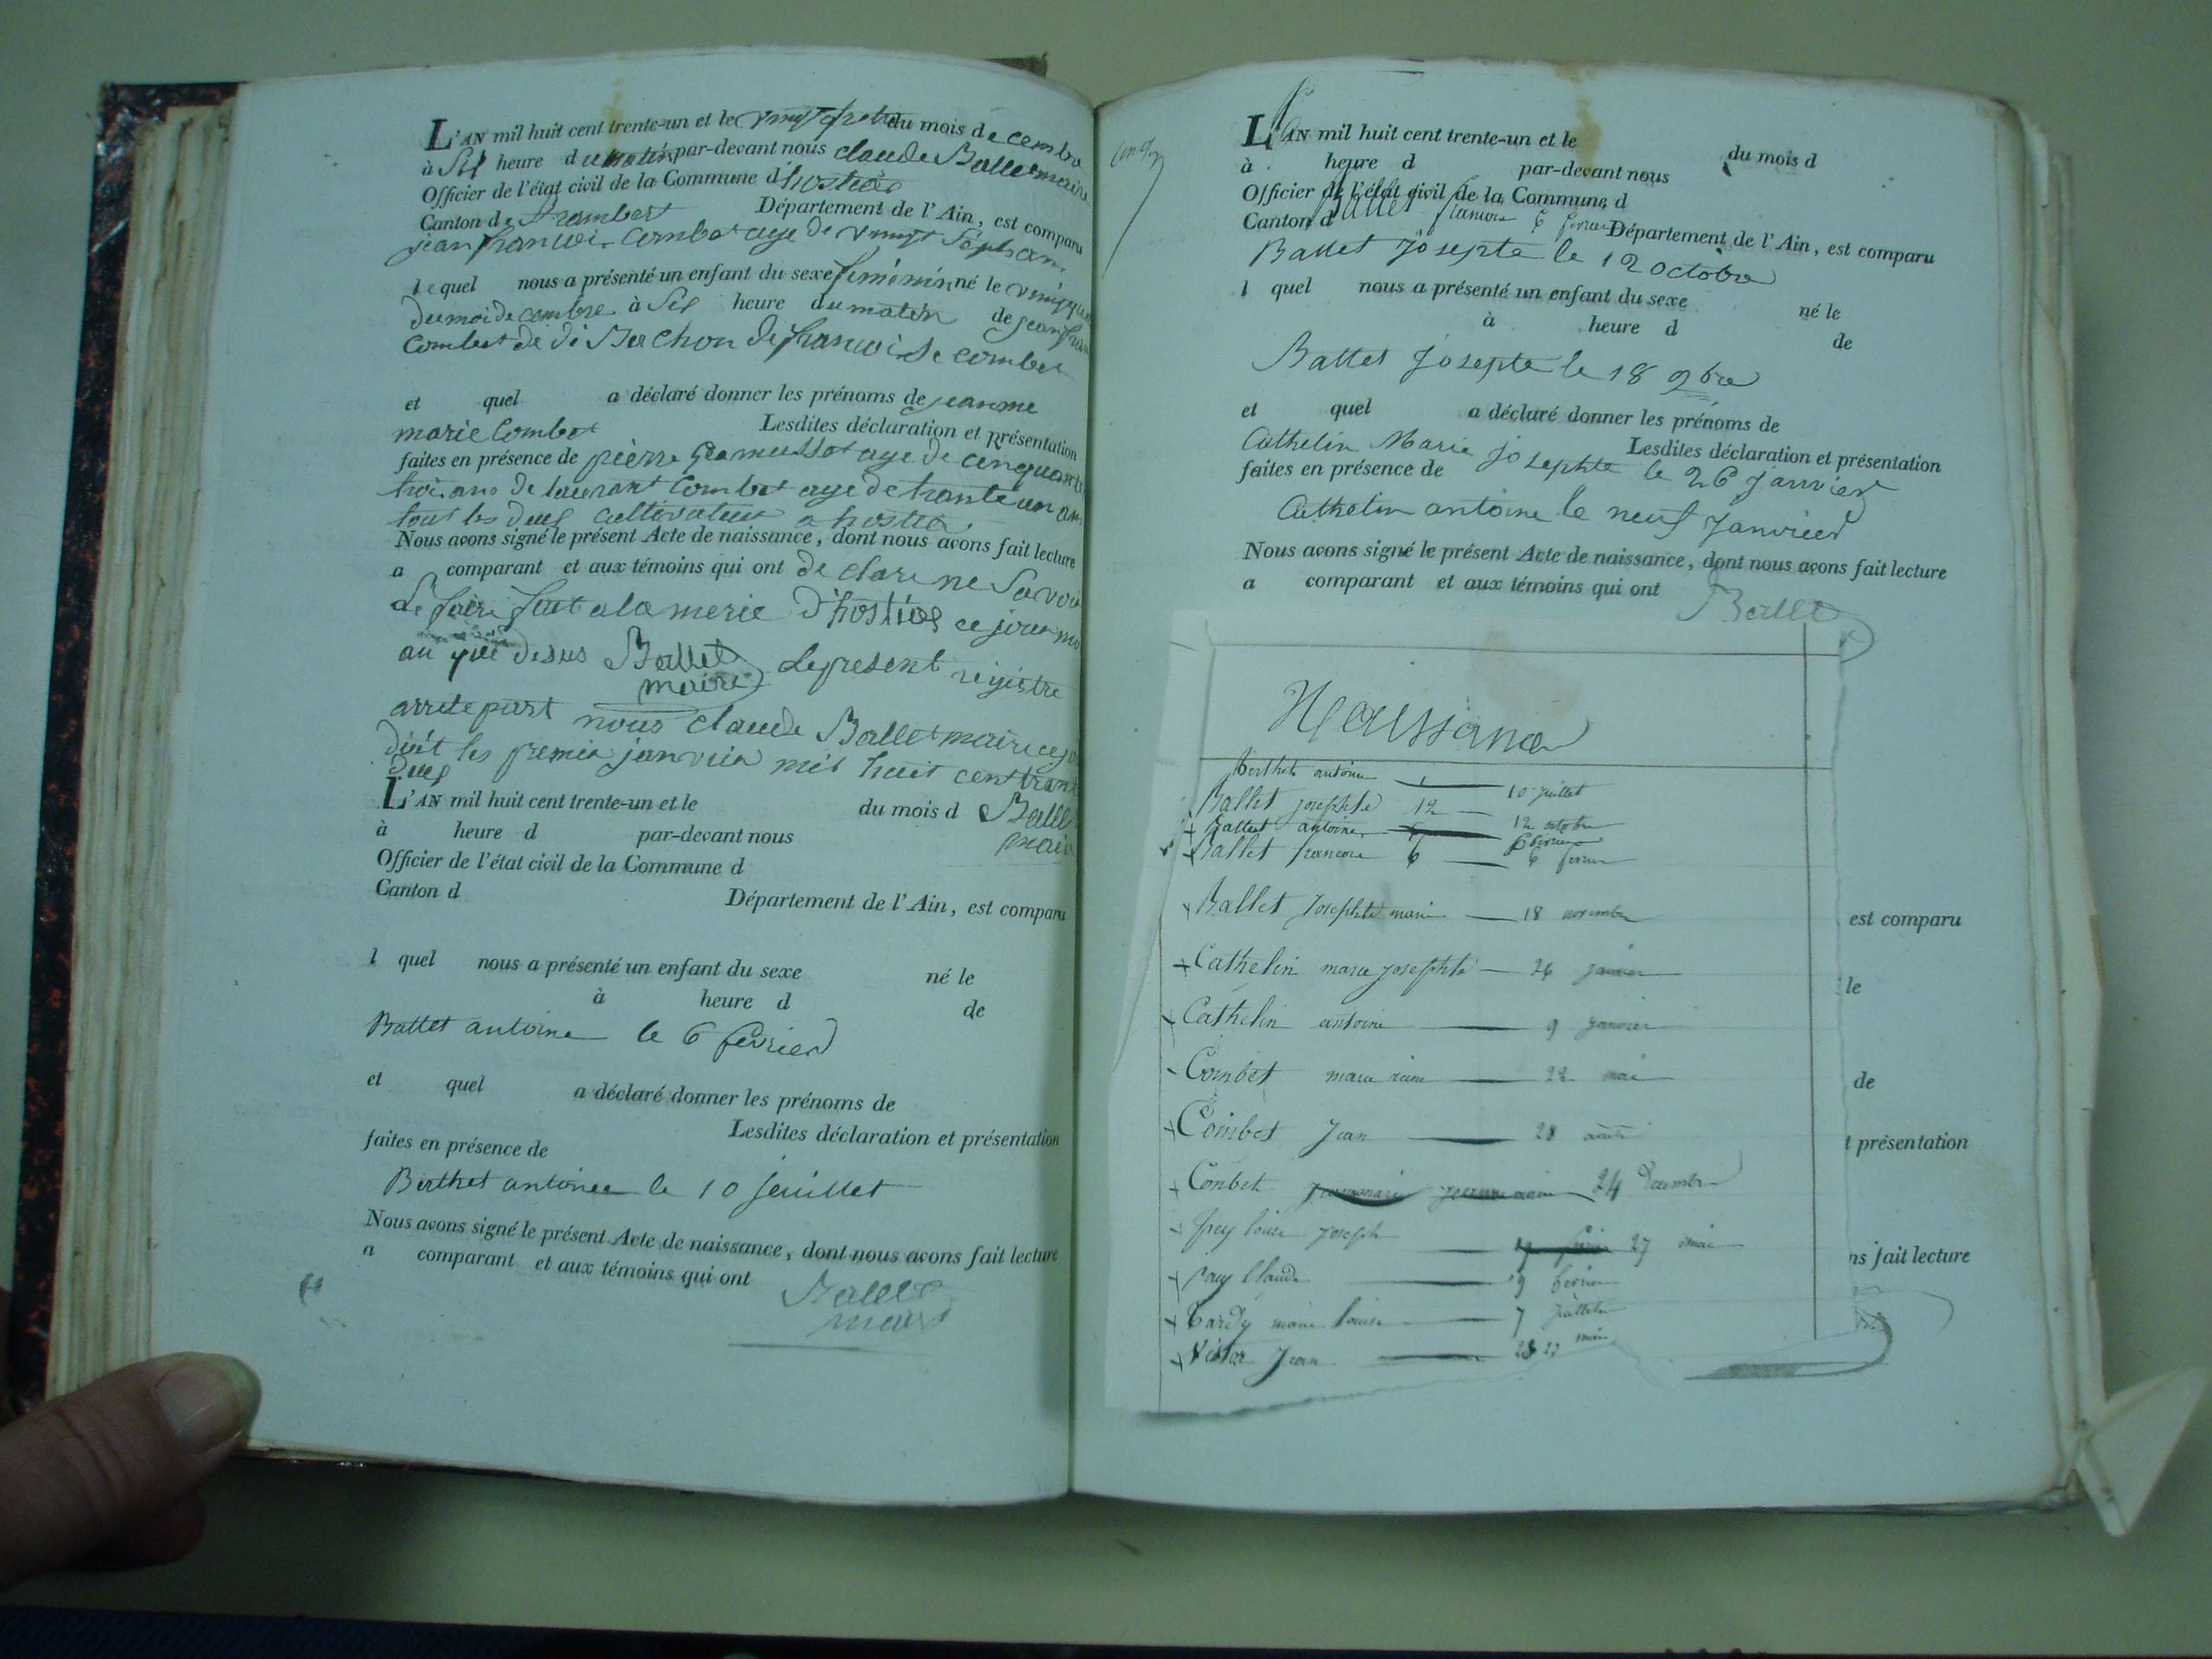 L'AN mil huit cent trente-un et le du mois decembre
à Six heure du matin par-devant nous claude Ballet maire
Officier de l'état civil de la Commune d'hostias
Canton de St rambert Département de l'Ain, est comparu
jean francois combet age de vingt Sept ans
lequel nous a présenté un enfant du sexe feminin né le
du moi decembre à Six heure du matin de jean
Combet de di de francoise combet
et quel a déclaré donner les prénoms de jeanne
marie Combet Lesdites déclaration et présentation
faites en présence de pierre age de cinquante
troi ans de laurant Combet age de trante un an
tout les deux cultivateur a hostia
Nous avons signé le présent Acte de naissance, dont nous avons fait lecture
a comparant et aux témoins qui ont declare ne Savoir
Le faire fait a la merie d'hostias ce jour moi
an que desus Ballet le present registre
maire
arrete part nous claude Ballet maire
les premier janvier mil huit cent trante
deux
L'AN mil huit cent trente-un et le du mois d Ballet
à heure d par-devant nous maire
Officier de l'état civil de la Commune d
Canton d Département de l'Ain, est comparu
l quel nous a présenté un enfant du sexe né le
à heure d de
Ballet antoine le 6 fevrier
et quel a déclaré donner les prénoms de
Lesdites déclaration et présentation
faites en présence de
Berthet antoine le 10 jeuillet
Nous avons signé le présent Acte de naissance, dont nous avons fait lecture
a comparant et aux témoins qui ont
Ballet
maire
L'AN mil huit cent trente-un et le du mois d
à heure d par-devant nous
Officier de l'état civil de la Commune d
Canton d Ballet 6 fevrier Département de l'Ain, est comparu
Ballet josepte le 12 octobre
l quel nous a présenté un enfant du sexe né le
à heure d de
Ballet josepte le 18 9bre
et quel a déclaré donner les prénoms de
Cathelin Marie josephte Lesdites déclaration et présentation
faites en présence de le 26 janvier
Cathelin antoine le neuf janvier
Nous avons signé le présent Acte de naissance, dont nous avons fait lecture
a comparant et aux témoins qui ont
Ballet
Naissance
Berthet antoine 10 juillet
Ballet josephte 12 12 octobre
Ballet antoine 6 fevrier
Ballet francois 6 6 fevrier
Ballet Josephte marie 18 novembre
est comparu
Cathelin marie josephte 26 janvier
le
Cathelin antoine 9 janvier
Combet marie 22 mai
de
Combet Jean 28 août
t présentation
Combet jeanne marie 24 Decembre
frey louis Joseph 27 mai
ns fait lecture
Claude 19 fevrier
Tardy marie louise 7 juillet
Jean 22 mai